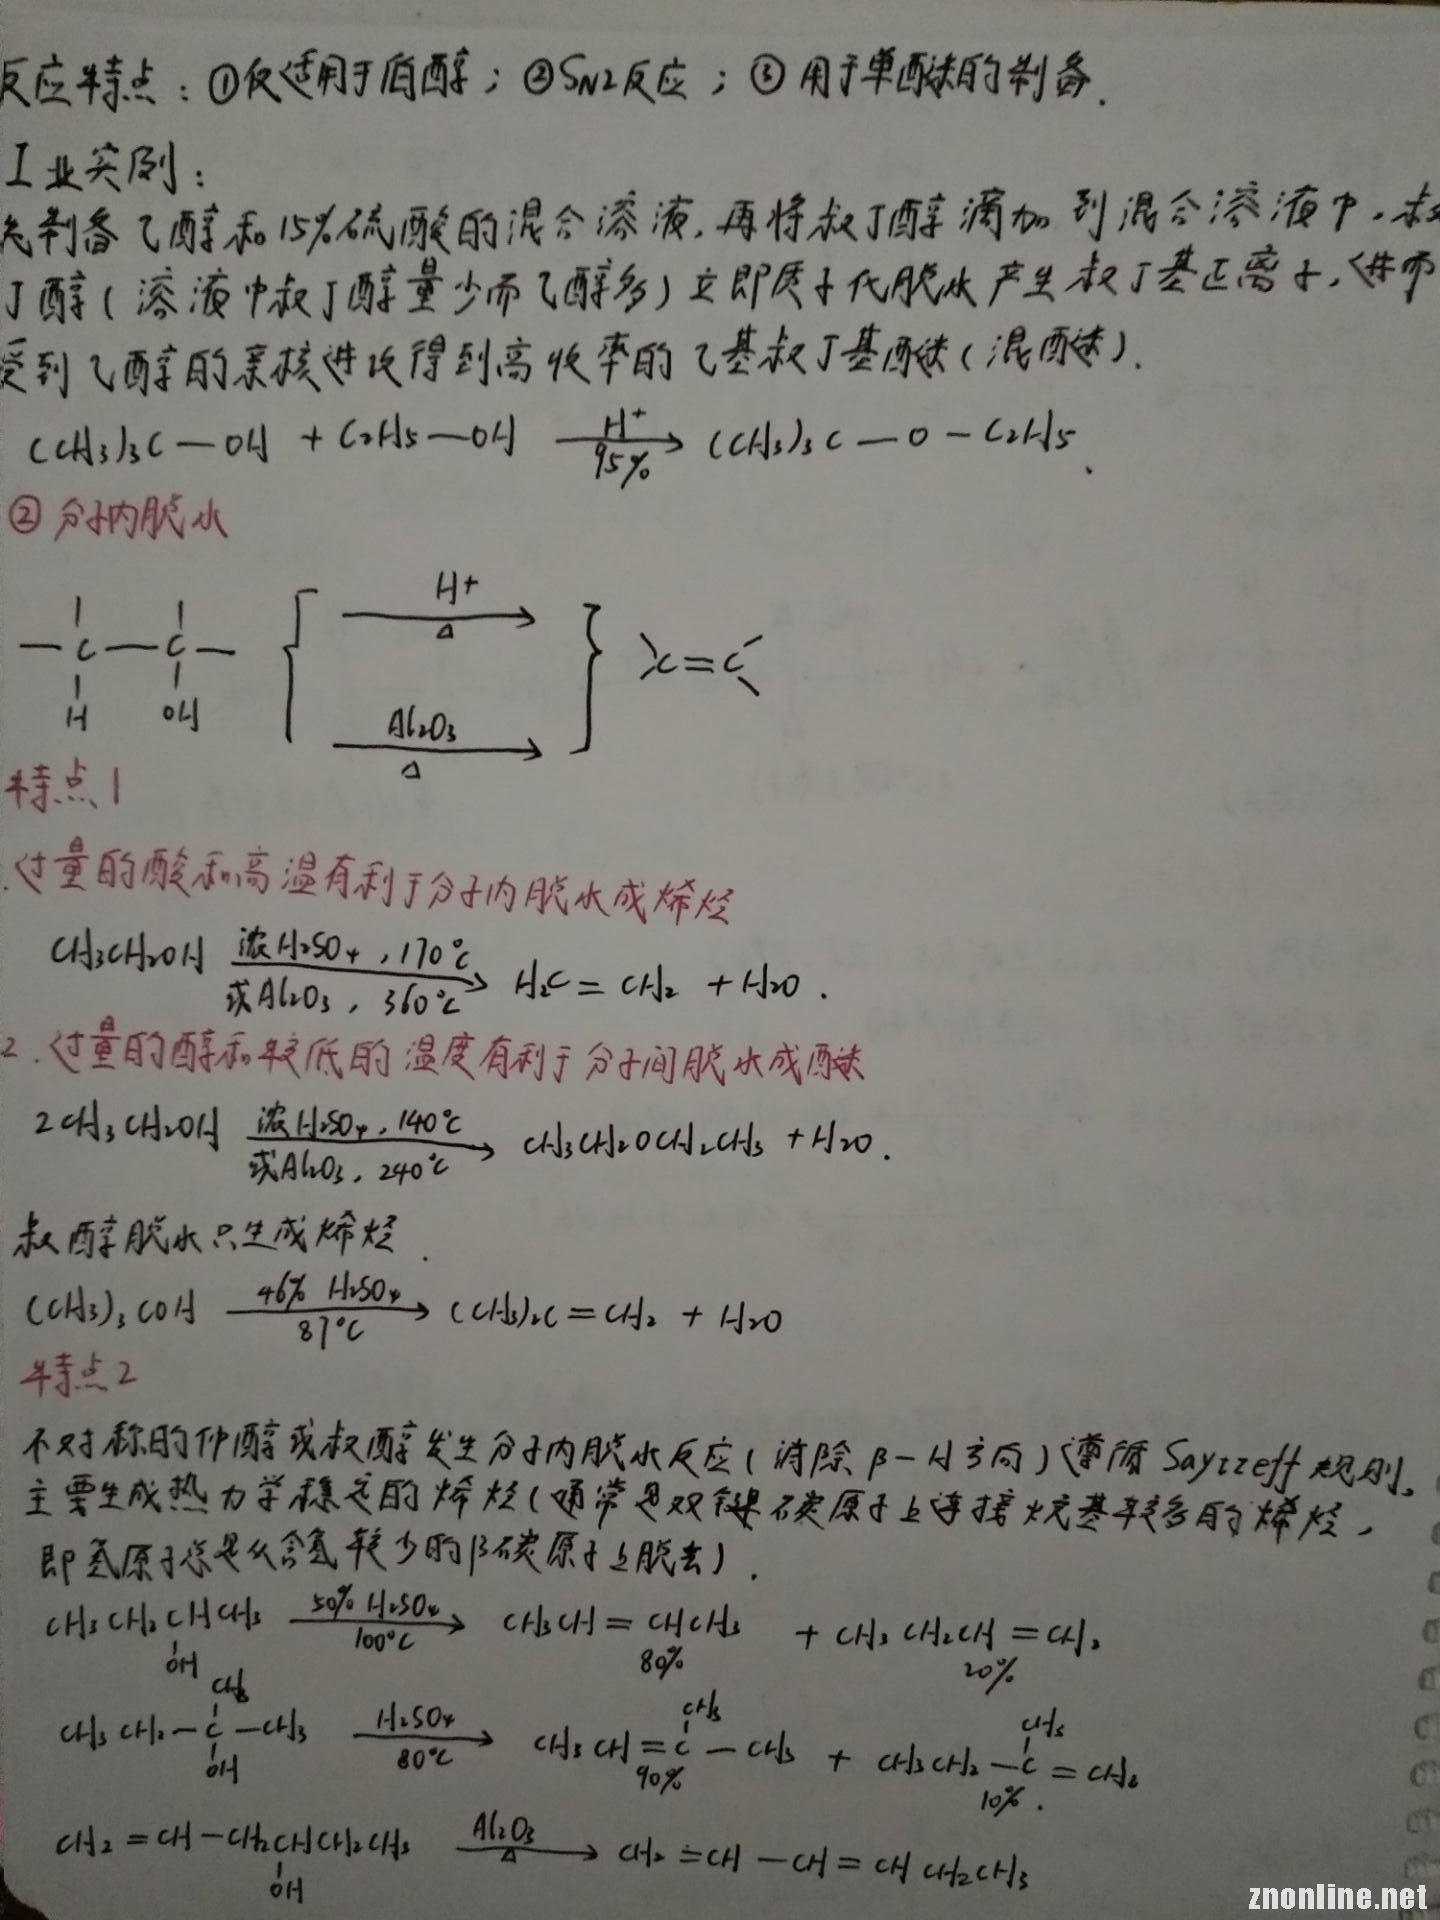 反应特点：①仅适用于伯醇；②SN2反应；③用于单醚的制备.
工业实例：
先制备乙醇和15%硫酸的混合溶液,再将叔丁醇滴加到混合溶液中,叔
丁醇(溶液中叔丁醇量少而乙醇多)立即质子化脱水产生叔丁基正离子,进而
受到乙醇的亲核进攻得到高收率的乙基叔丁基醚(混醚).
(CH3)3C—OH + C2H5—OH —H+ 95%→ (CH3)3C—O—C2H5.
②分子内脱水
H+
—C—C— { △ } >C=C<
H OH Al2O3
△
特点1
.过量的酸和高温有利于分子内脱水成烯烃
CH3CH2OH —浓H2SO4,170℃ 或Al2O3,360℃→ H2C=CH2 + H2O.
2.过量的醇和较低的温度有利于分子间脱水成醚
2CH3CH2OH —浓H2SO4,140℃ 或Al2O3,240℃→ CH3CH2OCH2CH3 + H2O.
叔醇脱水只生成烯烃.
(CH3)3COH —46% H2SO4 87℃→ (CH3)2C=CH2 + H2O
特点2
不对称的仲醇或叔醇发生分子内脱水反应(消除β-H方向)遵循Sayzzeff规则,
主要生成热力学稳定的烯烃(通常是双键碳原子上连接烷基较多的烯烃,
即氢原子总是从含氢较少的β碳原子上脱去).
CH3CH2CHCH3 —50% H2SO4 100℃→ CH3CH=CHCH3 + CH3CH2CH=CH2
OH 80% 20%
CH3 CH3 CH3
CH3CH2—C—CH3 —H2SO4 80℃→ CH3CH=C—CH3 + CH3CH2—C=CH2
OH 90% 10%.
CH2=CH—CH2CHCH2CH3 —Al2O3 △→ CH2=CH—CH=CHCH2CH3
OH
znonline.net